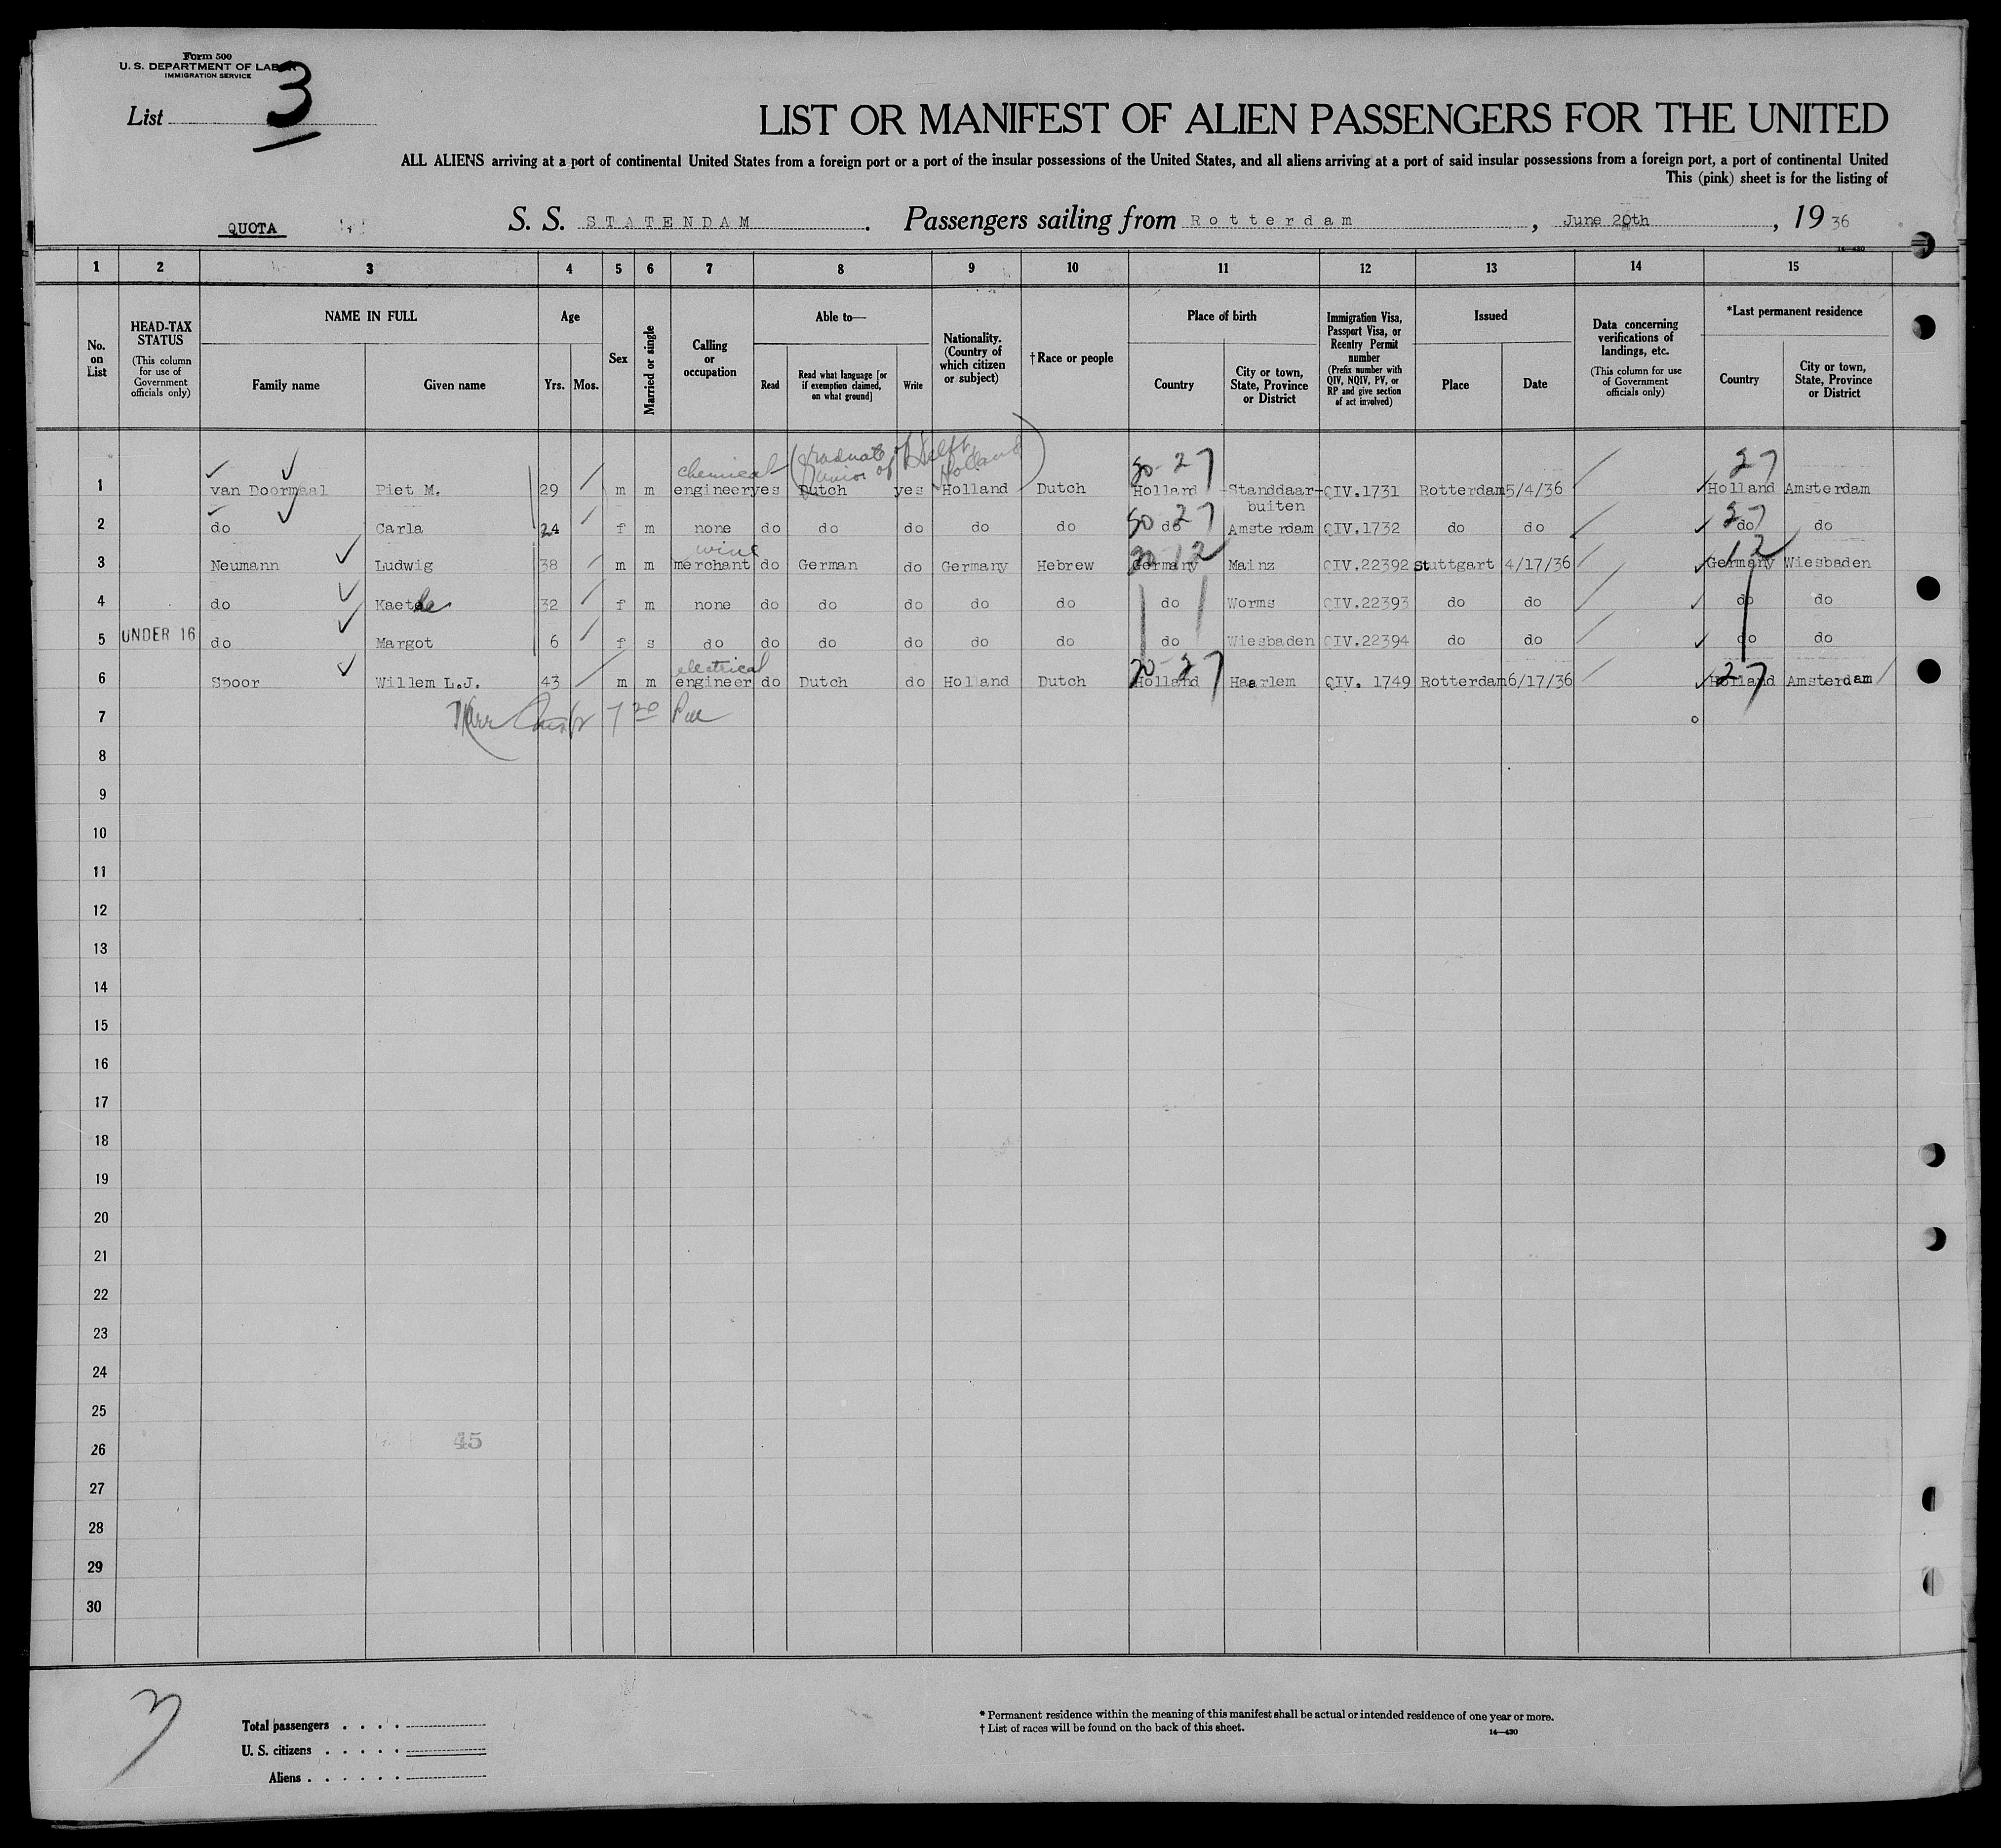 Form 500
U. S. DEPARTMENT OF LABOR
IMMIGRATION SERVICE
List 3
LIST OR MANIFEST OF ALIEN PASSENGERS FOR THE UNITED
ALL ALIENS arriving at a port of continental United States from a foreign port or a port of the insular possessions of the United States, and all aliens arriving at a port of said insular possessions from a foreign port, a port of continental United
This (pink) sheet is for the listing of
QUOTA S. S. STATENDAM . Passengers sailing from Rotterdam , June 20th , 19 36
14—430
1 2 3 4 5 6 7 8 9 10 11 12 13 14 15
No. on List
HEAD-TAX STATUS
(This column for use of Government officials only)
NAME IN FULL
Family name
Given name
Age
Yrs.
Mos.
Sex
Married or single
Calling or occupation
Able to—
Read
Read what language [or if exemption claimed, on what ground]
Write
Nationality. (Country of which citizen or subject)
† Race or people
Place of birth
Country
City or town, State, Province or District
Immigration Visa, Passport Visa, or Reentry Permit number
(Prefix number with QIV, NQIV, PV, or RP and give section of act involved)
Issued
Place
Date
Data concerning verifications of landings, etc.
(This column for use of Government officials only)
*Last permanent residence
Country
City or town, State, Province or District
chemical (Graduate of Delft Holland) 27
1 van Doormaal Piet M. 29 m m engineer yes Dutch yes Holland Dutch Holland Standdaar-buiten QIV.1731 Rotterdam 5/4/36 Holland Amsterdam
27 27
2 do Carla 24 f m none do do do do do do Amsterdam QIV.1732 do do do do
wine 12 12
3 Neumann Ludwig 38 m m merchant do German do Germany Hebrew Germany Mainz QIV.22392 Stuttgart 4/17/36 Germany Wiesbaden
4 do Kaethe 32 f m none do do do do do do Worms QIV.22393 do do do do
5 UNDER 16 do Margot 6 f s do do do do do do do Wiesbaden QIV.22394 do do do do
electrical 27 27
6 Spoor Willem L.J. 43 m m engineer do Dutch do Holland Dutch Holland Haarlem QIV. 1749 Rotterdam 6/17/36 Holland Amsterdam
7
8
9
10
11
12
13
14
15
16
17
18
19
20
21
22
23
24
25
45
26
27
28
29
30
Total passengers . . . .
U. S. citizens . . . . .
Aliens . . . . . .
* Permanent residence within the meaning of this manifest shall be actual or intended residence of one year or more.
† List of races will be found on the back of this sheet.
14—430